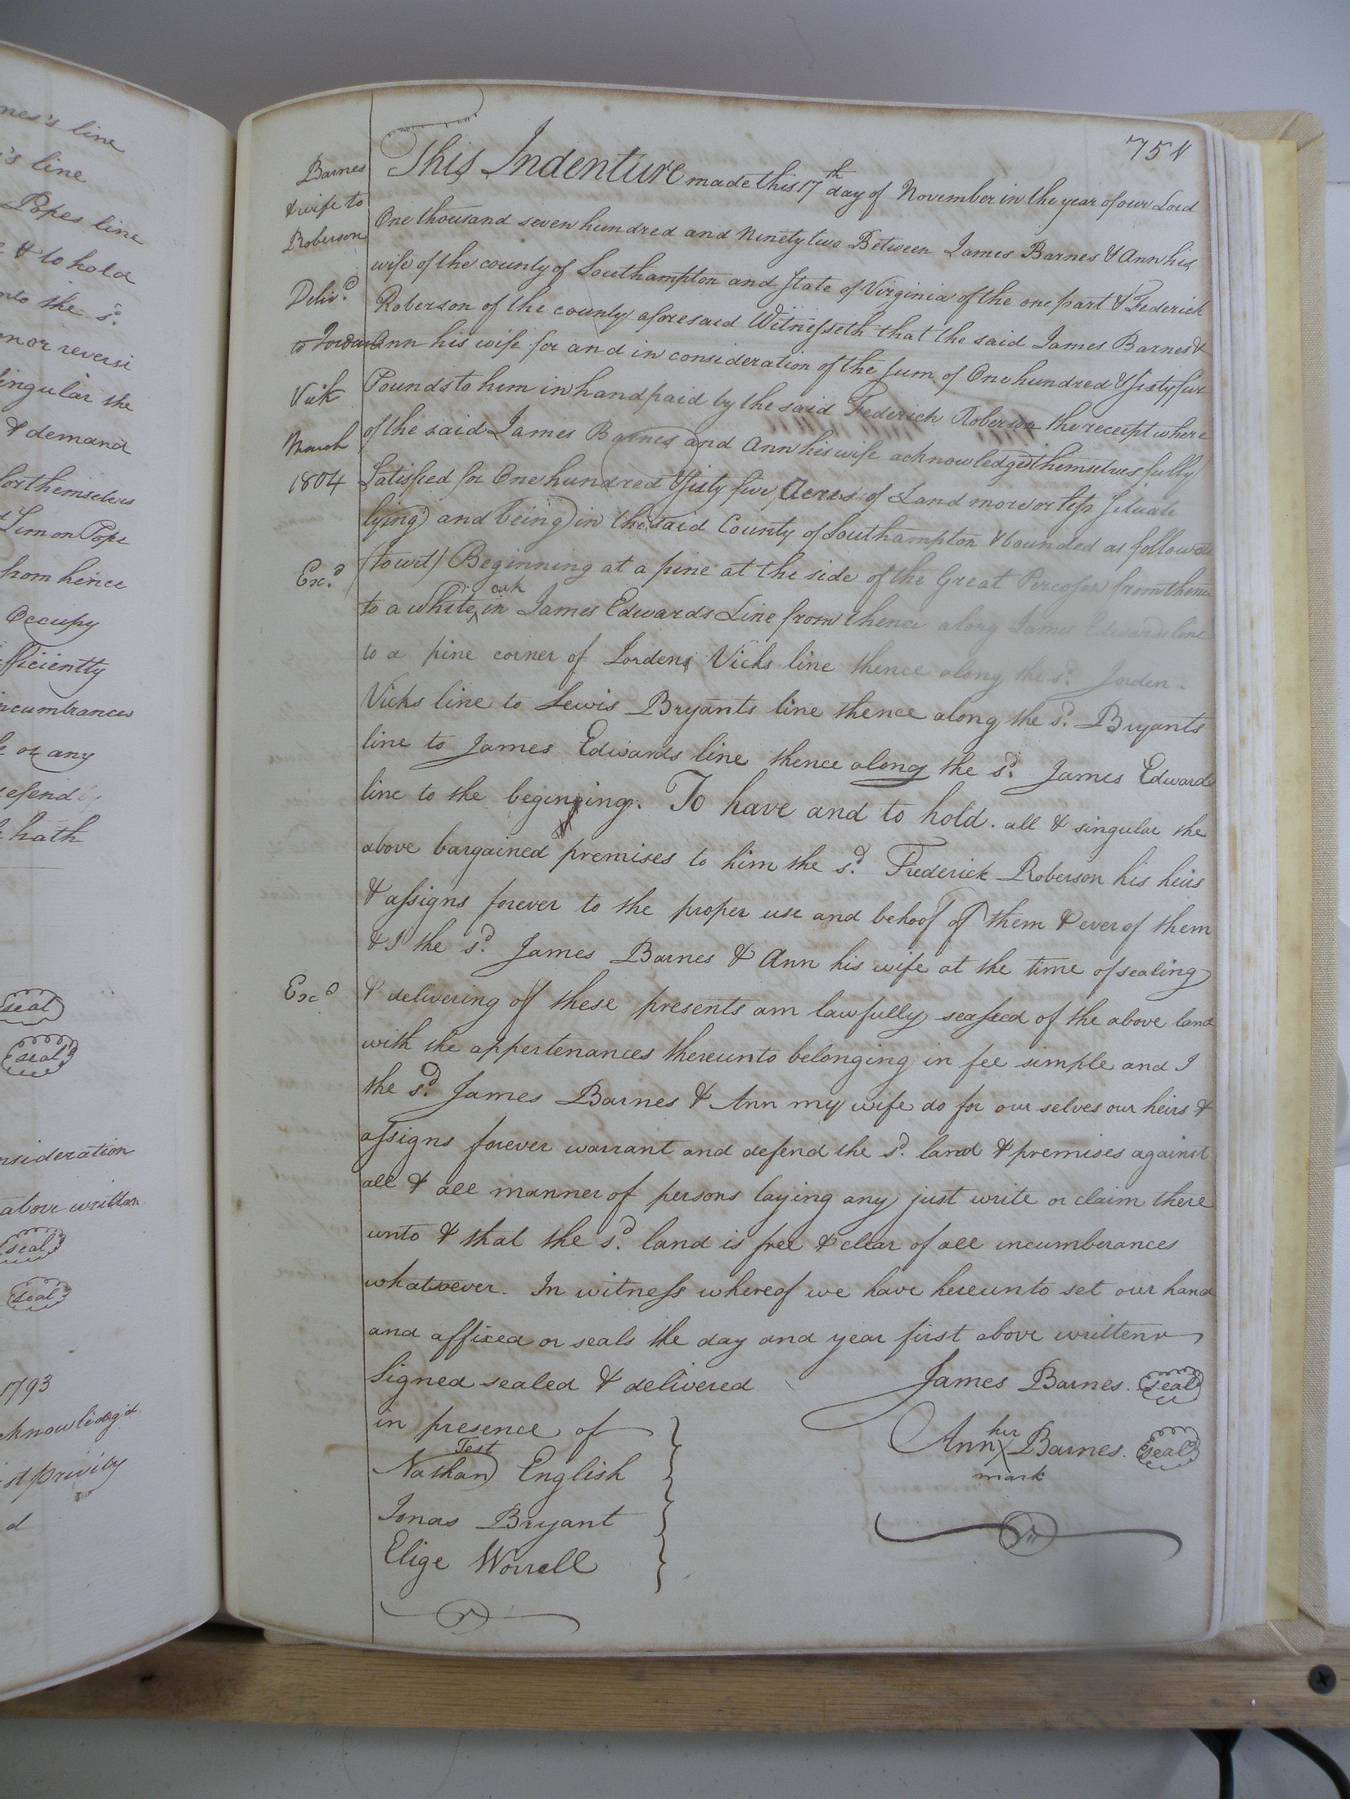 nes's line
's line
Popes line
e & to hold
nto the sd.
n or reversi
ingular the
& demand
for themselves
Simon Pope
from hence
Occupy
fficiently
ncumbrances
or any
defend
hath
seal
seal
nsideration
above written
seal
seal
1793
cknowledg'd
st privily
d
751
Barnes
& wife to
Roberson
Deliv.d
to Jordan
Vick
March
1804
Exd.
Excd
This Indenture made this 17th day of November in the year of our Lord
One thousand seven hundred and Ninety two Between James Barnes & Ann his
wife of the county of Southampton and State of Virginia of the one part & Federick
Roberson of the county aforesaid Witnesseth that the said James Barnes &
Ann his wife for and in consideration of the Sum of One hundred & Sixty five
Pounds to him in hand paid by the said Federick Roberson the receipt where
of the said James Barnes and Ann his wife acknowledges themselves fully
Satisfied for One hundred & Sixty five Acres of Land more or less situate
lying and being in the said County of Southampton & bounded as follows
(towit) Beginning at a pine at the side of the Great Percoson from thence
to a white oak in James Edwards Line from thence along James Edwards line
to a pine corner of Jordens Vicks line thence along the sd. Jorden
Vicks line to Lewis Bryants line thence along the sd. Bryants
line to James Edwards line thence along the sd. James Edwards
line to the begenning. To have and to hold. all & singular the
above bargained premises to him the sd. Frederick Roberson his heirs
& assigns forever to the proper use and behoof of them & ever of them
& I the sd. James Barnes & Ann his wife at the time of sealing
& delivering of these presents am lawfully seassed of the above land
with the appertenances thereunto belonging in fee simple and I
the sd. James Barnes & Ann my wife do for our selves our heirs &
assigns forever warrant and defend the sd. land & premises against
all & all manner of persons laying any just write or claim there
unto & that the sd. land is free & clear of all incumberances
whatsoever. In witness whereof we have hereunto set our hand
and affixed or seals the day and year first above written
Signed sealed & delivered James Barnes. seal
in presence of
Test Ann her X mark Barnes. seal
Nathan English
Jonas Bryant
Elige Worrell